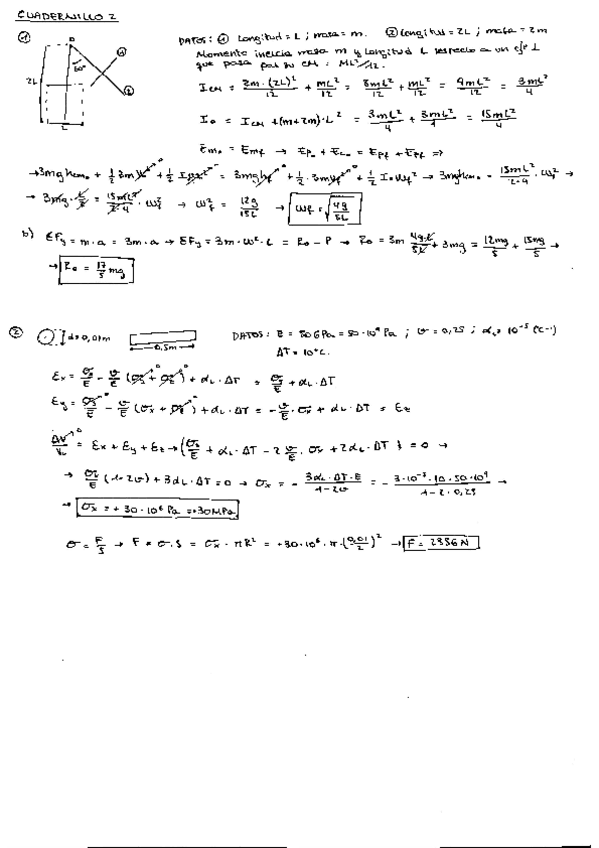 CUADERNILLO 2
① DATOS: ① Longitud = L ; masa = m. ② Longitud = 2L ; masa = 2m
Momento inercia masa m y longitud L respecto a un eje ⊥
que pasa por su CM: ML²/12.
2L 60° ① ② L
I_CM = 2m·(2L)²/12 + mL²/12 = 8mL²/12 + mL²/12 = 9mL²/12 = 3mL²/4
I_o = I_CM + (m+2m)·L² = 3mL²/4 + 3mL²/1 = 15mL²/4
E_mo = E_mf → E_po + E_co = E_pf + E_cf =>
→ 3mgh_cmo + 1/2 3m + 1/2 I = 3mgh_f + 1/2 · 3m + 1/2 I_o w_f² → 3mgh_cmo = 15mL²/2·4 · w_f² →
→ 3mg · L/2 = 15mL²/2·4 · w_f² → w_f² = 12g/15L → w_f = √4g/5L
b) ΣF_y = m·a = 3m·a → ΣF_y = 3m·w²·L = R_o - P → R_o = 3m 4g·L/5L + 3mg = 12mg/5 + 15mg/5 →
→ R_o = 17/5 mg
② d = 0,01m 0,5m DATOS: E = 50GPa = 50·10⁹ Pa ; ν = 0,25 ; α_L = 10⁻⁵ (ºC⁻¹)
ΔT = 10ºC.
ε_x = σ_x/E - ν/E (σ_y + σ_z) + α_L · ΔT = σ_x/E + α_L · ΔT
ε_y = σ_y/E - ν/E (σ_x + σ_z) + α_L · ΔT = -ν/E · σ_x + α_L · ΔT = ε_z
ΔV/V_0 = ε_x + ε_y + ε_z → {σ_x/E + α_L · ΔT - 2 ν/E · σ_x + 2α_L · ΔT } = 0 →
→ σ_x/E (1-2ν) + 3α_L · ΔT = 0 → σ_x = - 3α_L · ΔT · E/1-2ν = - 3·10⁻⁵ · 10 · 50·10⁹/1-2·0,25 →
→ σ_x = + 30·10⁶ Pa = 30MPa
σ = F/S → F = σ·S = σ_x · πR² = +30·10⁶ · π · (0,01/2)² → F = 2356 N